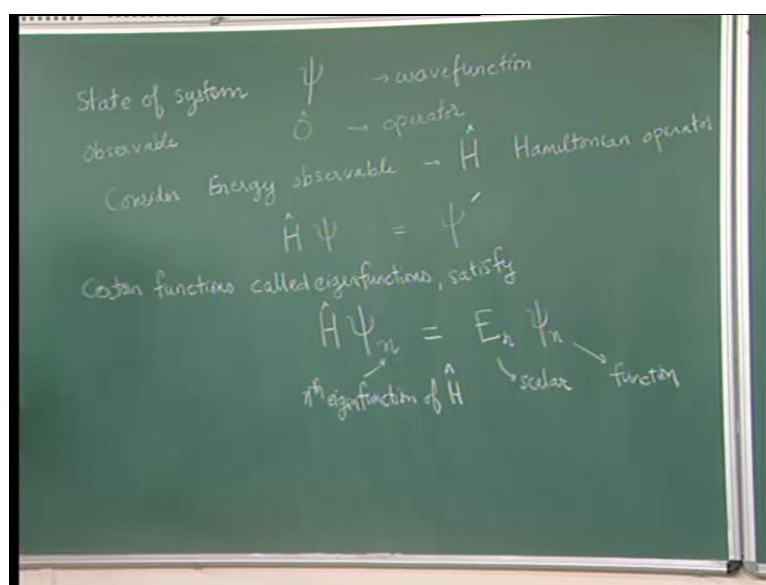 State of system ψ → wavefunction
Observable Ô → operator
Consider Energy observable → Ĥ Hamiltonian operator
Ĥ ψ = ψ′
Certain functions called eigenfunctions, satisfy
Ĥ ψₙ = Eₙ ψₙ
nᵗʰ eigenfunction of Ĥ scalar function